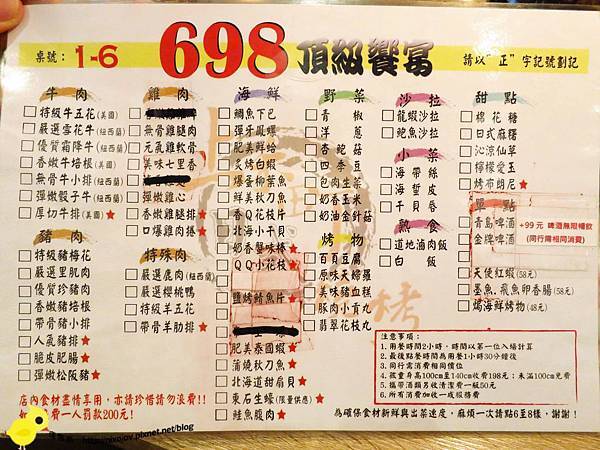 桌號： 1-6
698 頂級饗宴
請以"正"字記號劃記
牛肉
特級牛五花(美國)
嚴選雪花牛(紐西蘭)
優質霜降牛(紐西蘭)
香嫩牛培根(美國)
無骨牛小排(紐西蘭)
彈嫩骰子牛(紐西蘭)
厚切牛排(美國)★
豬肉
特級豬梅花
嚴選里肌肉
優質珍豬肉
香嫩豬培根
帶骨豬小排
人氣豬排★
脆皮肥腸★
彈嫩松阪豬★
雞肉
無骨雞腿肉
元氣雞軟骨
美味七里香
香嫩雞腿排★
口爆雞肉捲★
特殊肉
嚴選鹿肉(紐西蘭)
嚴選櫻桃鴨
特級羊五花
帶骨羊肋排★
海鮮
鯛魚下巴
彈牙鳳螺
肥美鮮蛤
炙烤白蝦
爆蛋柳葉魚
鮮美秋刀魚
香Q花枝片
北海小干貝
奶香蟹味棒★
QQ小花枝★
鹽烤鯖魚片★
肥美泰國蝦★
蒲燒秋刀魚
北海道甜扇貝★
東石生蠔(限量供應)★
鮭魚腹肉★
野菜
青椒
洋蔥
杏鮑菇
四季豆
包肉生菜
奶香玉米
奶油金針菇
烤物
百頁豆腐
原味天婦羅
美味豬血糕
豚肉小貢丸
翡翠花枝丸
沙拉
龍蝦沙拉
鮑魚沙拉
小菜
海帶絲
海蜇皮
干貝唇
熟食
道地滷肉飯
白飯
甜點
棉花糖
日式麻糬
沁涼仙草
檸檬愛玉
烤布朗尼★
單點
青島啤酒
金牌啤酒
+99元 啤酒無限暢飲
(同行需相同消費)
天使紅蝦(58元)
墨魚.飛魚卵香腸(58元)
焗海鮮烤物(48元)
注意事項：
1.用餐時間2小時，時間以第一位入場計算
2.最後點餐時間為用餐1小時30分鐘後
3.同行需消費相同價位
4.孩童身高100cm至140cm收費198元；未滿100cm免費
5.攜帶酒類另收清潔費一瓶50元
6.所有消費加收一成服務費
店內食材盡情享用，亦請珍惜請勿浪費!!
費一人罰款200元!
為確保食材新鮮與出菜速度，麻煩一次請點6至8樣，謝謝!
http://nixojov.pixnet.net/blog